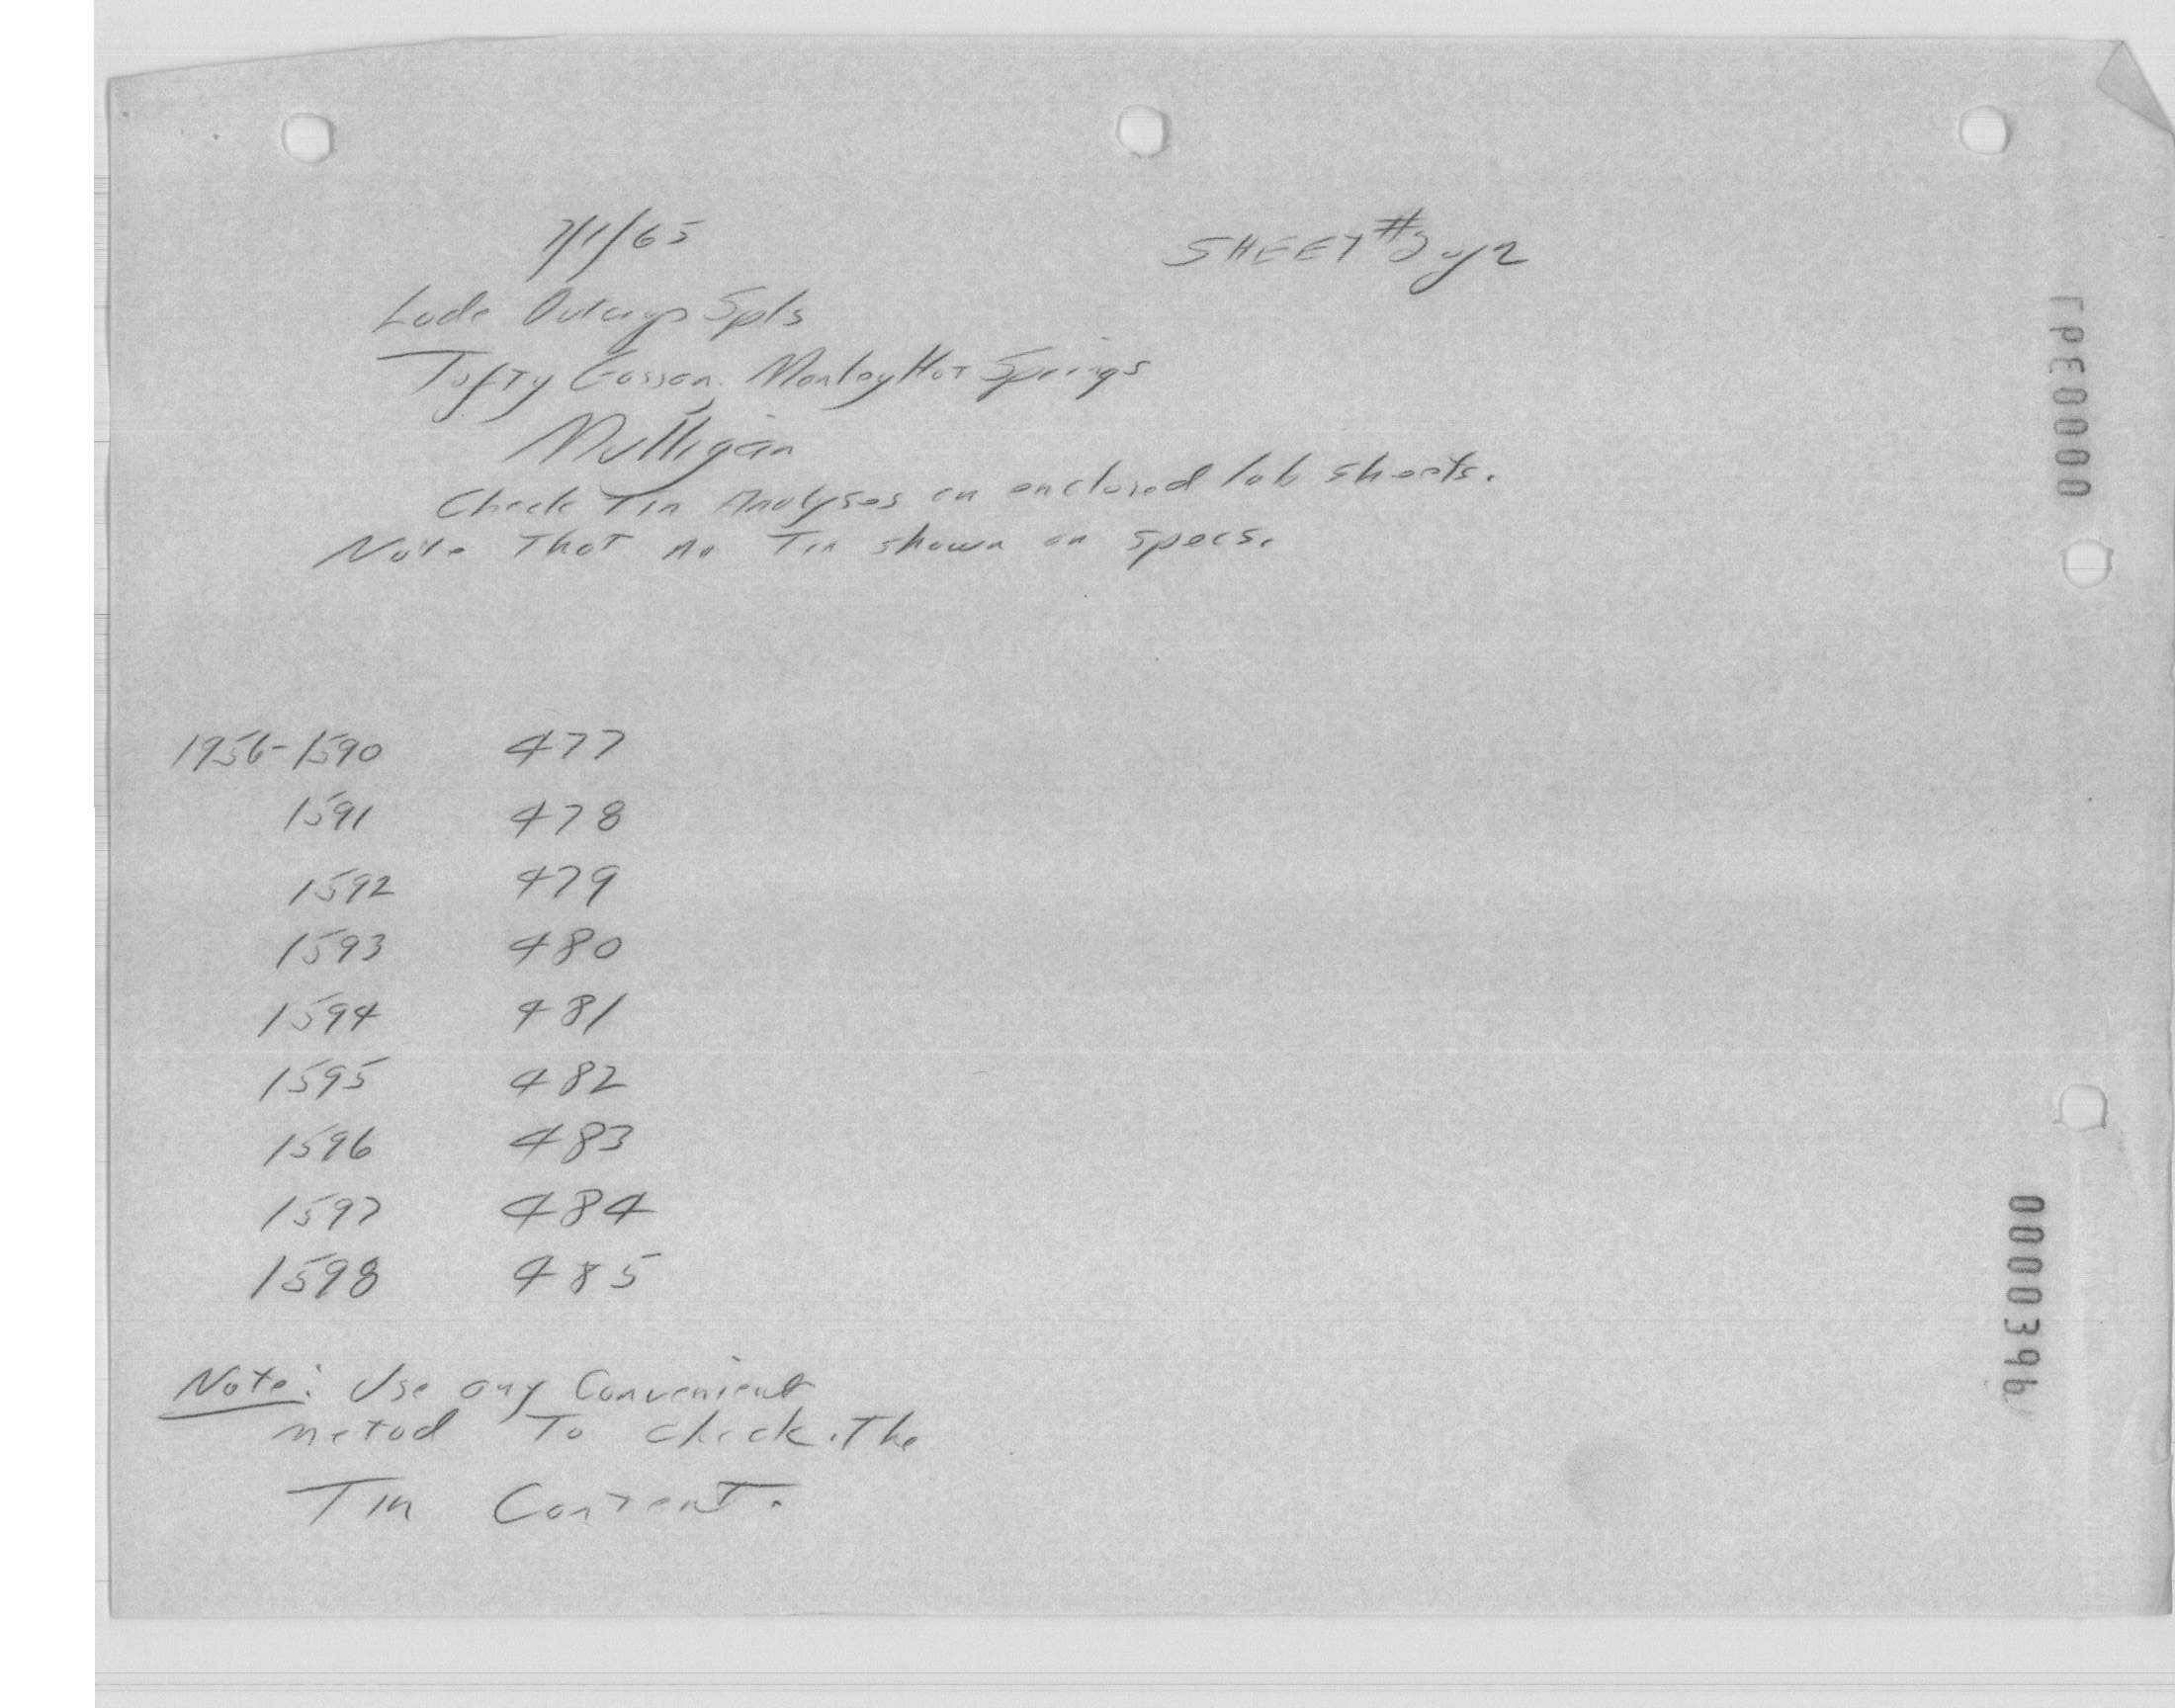 7/1/65
SHEET #2 of 2
Lode Outcrop Spls
Tofty Gossan. Manley Hot Springs
Mulligan
Check Tin Analyses on enclosed lab sheets.
Note That no Tin shown on specs.
1956-1590 477
1591 478
1592 479
1593 480
1594 481
1595 482
1596 483
1597 484
1598 485
Note: Use any Convenient
metod To check The
Tin Content.
0000396